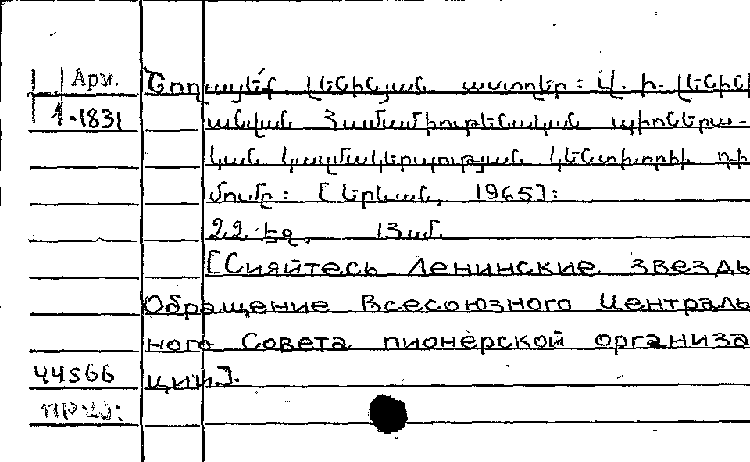 Арм. Շողացե՛ք լենինյան աստղեր: Վ. Ի. Լենին
1-1831 անվան Համամիութենական պիոներա-
կան կազմակերպության կենտխորհի դի
մումը: [Երևան, 1965]:
22 էջ, 13սմ.
[Сияйтесь Ленинские звезды
Обращение Всесоюзного Централь
ного Совета пионерской организа
44566 ции].